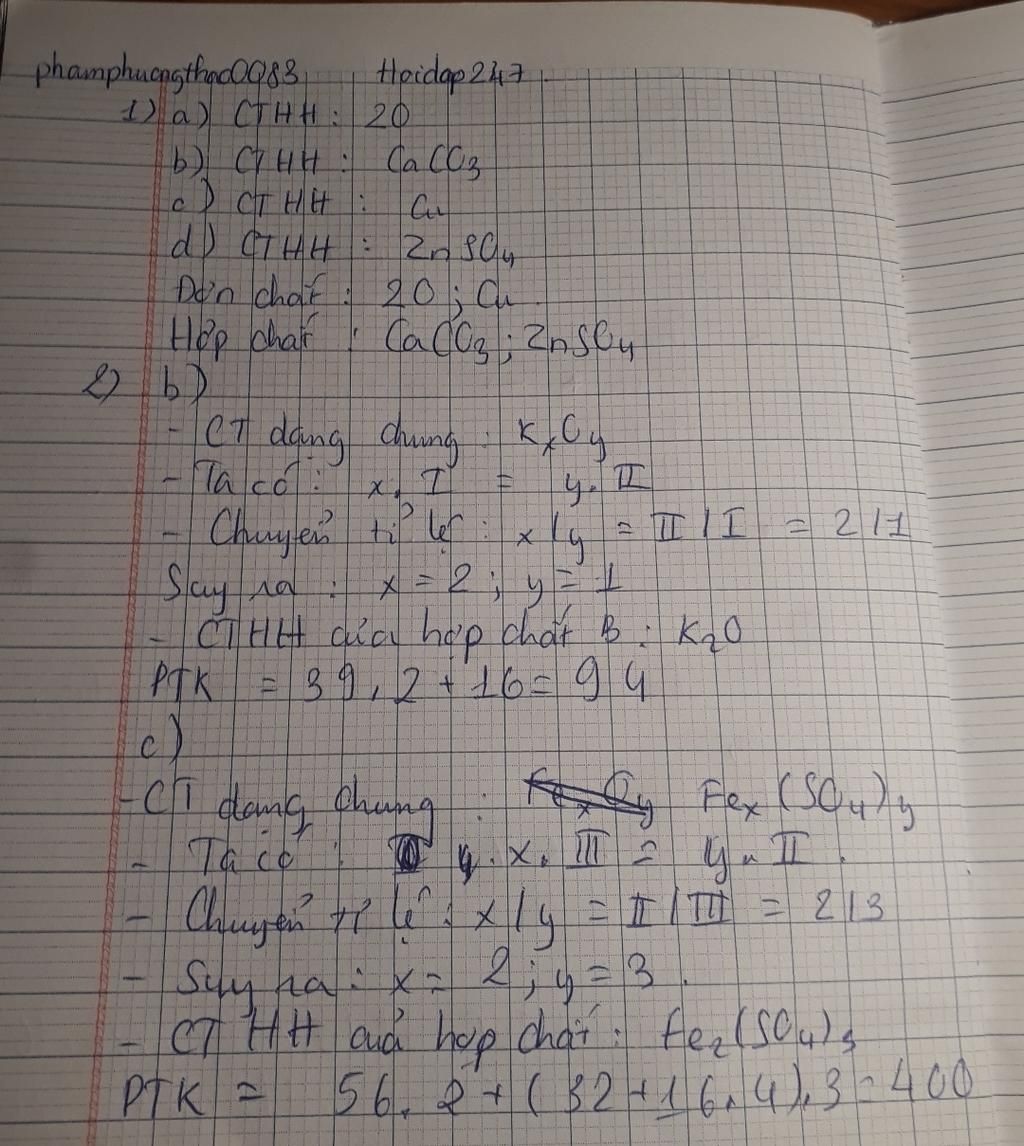 phamphuongthao0083 Hoidap247
1) a) CTHH : 2O
b) CTHH : CaCO3
c) CTHH : Cu
d) CTHH : ZnSO4
Đơn chất : 2O ; Cu
Hợp chất : CaCO3 ; ZnSO4
2) b)
- CT dạng chung : KxOy
- Ta có : x. I = y. II
- Chuyển tỉ lệ : x/y = II/I = 2/1
Suy ra : x = 2 ; y = 1
- CTHH của hợp chất B : K2O
PTK = 39.2 + 16 = 94
c)
- CT dạng chung : Fex(SO4)y
- Ta có : x. III = y. II
- Chuyển tỉ lệ : x/y = II/III = 2/3
- Suy ra : x = 2 ; y = 3.
- CTHH quả hợp chất : Fe2(SO4)3
PTK = 56. 2 + (32 + 16.4).3 = 400